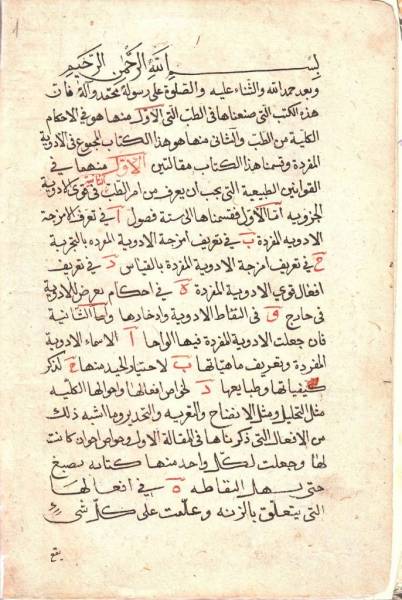 بسم الله الرحمن الرحيم
وبعد حمد الله والثناء عليه والصلوة على رسوله محمد وآله فان
هذه الكتب التى صنعناها فى الطب التى الاول منها هو فى الاحكام
الكلية من الطب والثانى منها هو هذا الكتاب المجموع فى الادوية
المفردة وقسمنا هذا الكتاب مقالتين الاولى منهما في
القوانين الطبيعية التى يجب ان يعرف من امر الطب فى قوى الادوية
الجزويه اما الاول فقسمناها الى ستة فصول ا فى تعرف امزجة
الادويه المفردة ب فى تعريف امزجة الادوية المفرده بالتجربة
ج فى تعريف امزجة الادوية المفردة بالقياس د فى تعريف
افعال قوي الادوية المفردة ه فى احكام يعرض للادوية
فى خارج و فى التقاط الادوية وادخارها واما الثانية
فان جعلت الادوية المفردة فيها الواحا ا الاسماء الادوية
المفردة وتعريف ماهياتها ب لاختيار الجيد منها ج لذكر
كيفياتها وطبايعها د لخواص افعالها واحوالها الكليه
مثل التحليل ومثل الانضاج والتغريه والتخدير وما اشبه ذلك
من الافعال التى ذكرناها فى المقالة الاولى وخواص اخرى ان كانت
لها وجعلت لكل واحد منها كتابه بصبغ
حتى يسهل التقاطه ه فى افعالها
التى يتعلق بالزنه وعلمت على كل شى
يقع